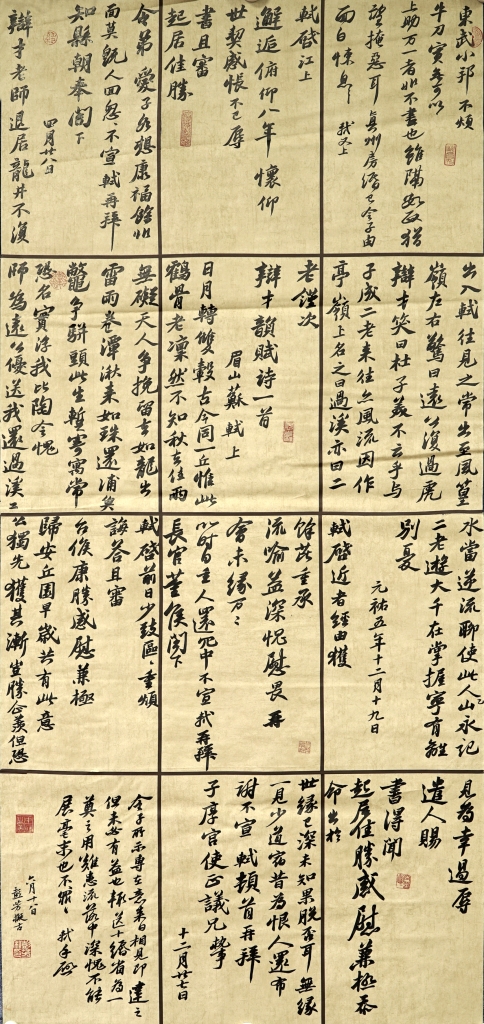 東武小邦不煩
牛刀實無可以
上助万一者非不書也雖隔數政猶
望掩惡耳真州房緡已令子由
面白悚息軾又上
軾啓江上
邂逅俯仰八年懷仰
世契感悵不已辱
書且審
起居佳勝
令弟愛子各想康福餘非
面莫既人回忽忽不宣軾再拜
知縣朝奉閤下
四月廿八日
辯才老師退居龍井不復
出入軾往見之常出至風篁
嶺左右驚曰遠公復過虎
辯才笑曰杜子美不云乎與
子成二老來往亦風流因作
亭嶺上名之曰過溪亦曰二
老謹次
辯才韻賦詩一首
眉山蘇軾上
日月轉雙轂古今同一丘惟此
鶴骨老凜然不知秋去住兩
無礙天人爭挽留去如龍出
雷雨卷潭湫來如珠還浦魚
鱉爭駢頭此生暫寄寓常
恐名實浮我比陶令愧
師為遠公優送我還過溪
水當逆流聊使此人山永記
二老遊大千在掌握寧有離
別憂
元祐五年十二月十九日
軾啓近者經由獲
餘茲重承
流喻益深愧慰畏再
會未緣萬萬
以時自重人還冗中不宣軾再拜
長官董侯閤下
軾啓前日少致區區重煩
誨答且審
台候康勝感慰兼極
歸安丘園早歲共有此意
公獨先獲其漸豈勝企羨但恐
見為幸過辱
遣人賜
書得聞
起居佳勝感慰兼極忝
命出於
世緣已深未知果脫否耳無緣
一見少道宿昔為恨人還布
謝不宣軾頓首再拜
子厚宮使正議兄執事
十二月廿七日
令子所示專在意來日相見即達之
但未必有益也輒送十緡省為一
奠之用難患流落中深愧不能
展毫末也不罪不罪軾手啟
六月十一日